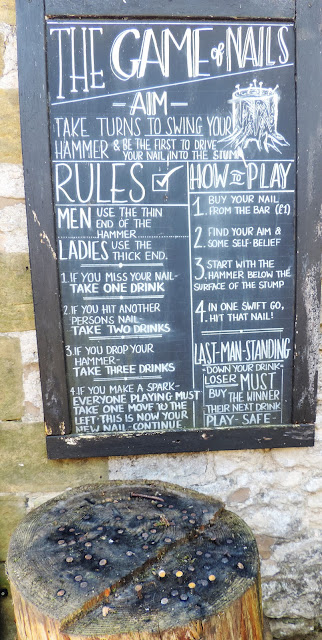 THE GAME of NAILS
- AIM -
TAKE TURNS TO SWING YOUR
HAMMER & BE THE FIRST TO DRIVE
YOUR NAIL INTO THE STUMP
RULES
MEN USE THE THIN
END OF THE
HAMMER
LADIES USE THE
THICK END.
1. IF YOU MISS YOUR NAIL-
TAKE ONE DRINK
2. IF YOU HIT ANOTHER
PERSONS NAIL-
TAKE TWO DRINKS
3. IF YOU DROP YOUR
HAMMER-
TAKE THREE DRINKS
4. IF YOU MAKE A SPARK-
EVERYONE PLAYING MUST
TAKE ONE MOVE TO THE
LEFT THIS IS NOW YOUR
NEW NAIL-CONTINUE
HOW TO PLAY
1. BUY YOUR NAIL
FROM THE BAR (£1)
2. FIND YOUR AIM &
SOME SELF-BELIEF
3. START WITH THE
HAMMER BELOW THE
SURFACE OF THE STUMP
4. IN ONE SWIFT GO,
HIT THAT NAIL!
LAST-MAN-STANDING
-DOWN YOUR DRINK-
LOSER MUST
BUY THE WINNER
THEIR NEXT DRINK
PLAY-SAFE-